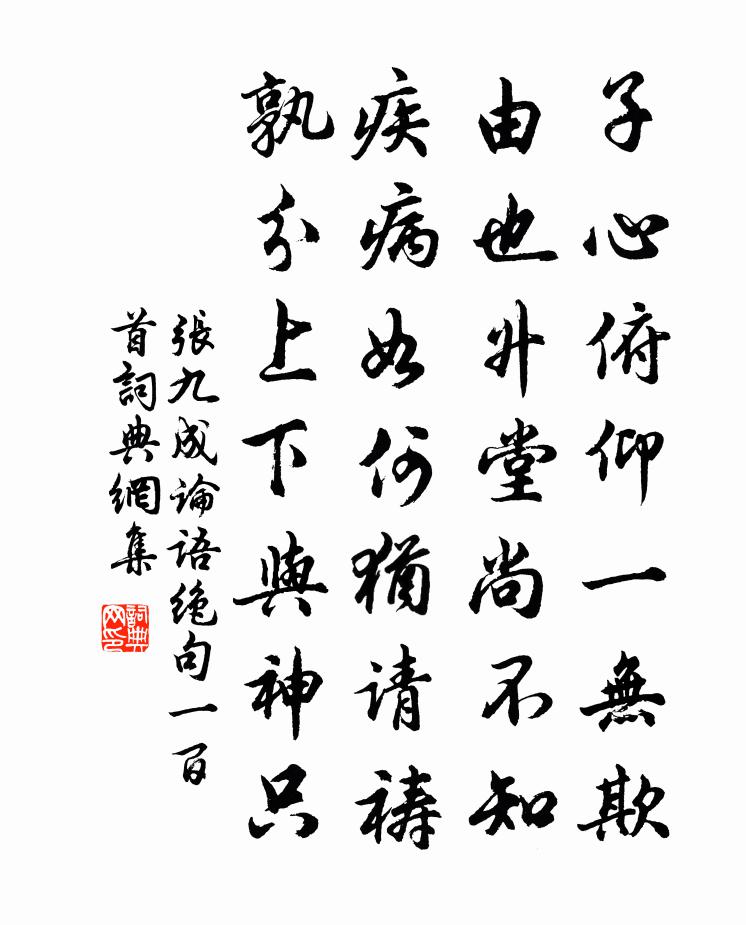 子心俯仰一無欺
由也升堂尚不知
疾病如何猶请禱
孰分上下與神只
張九成論语绝句一百
首詞典網集
詞典网印